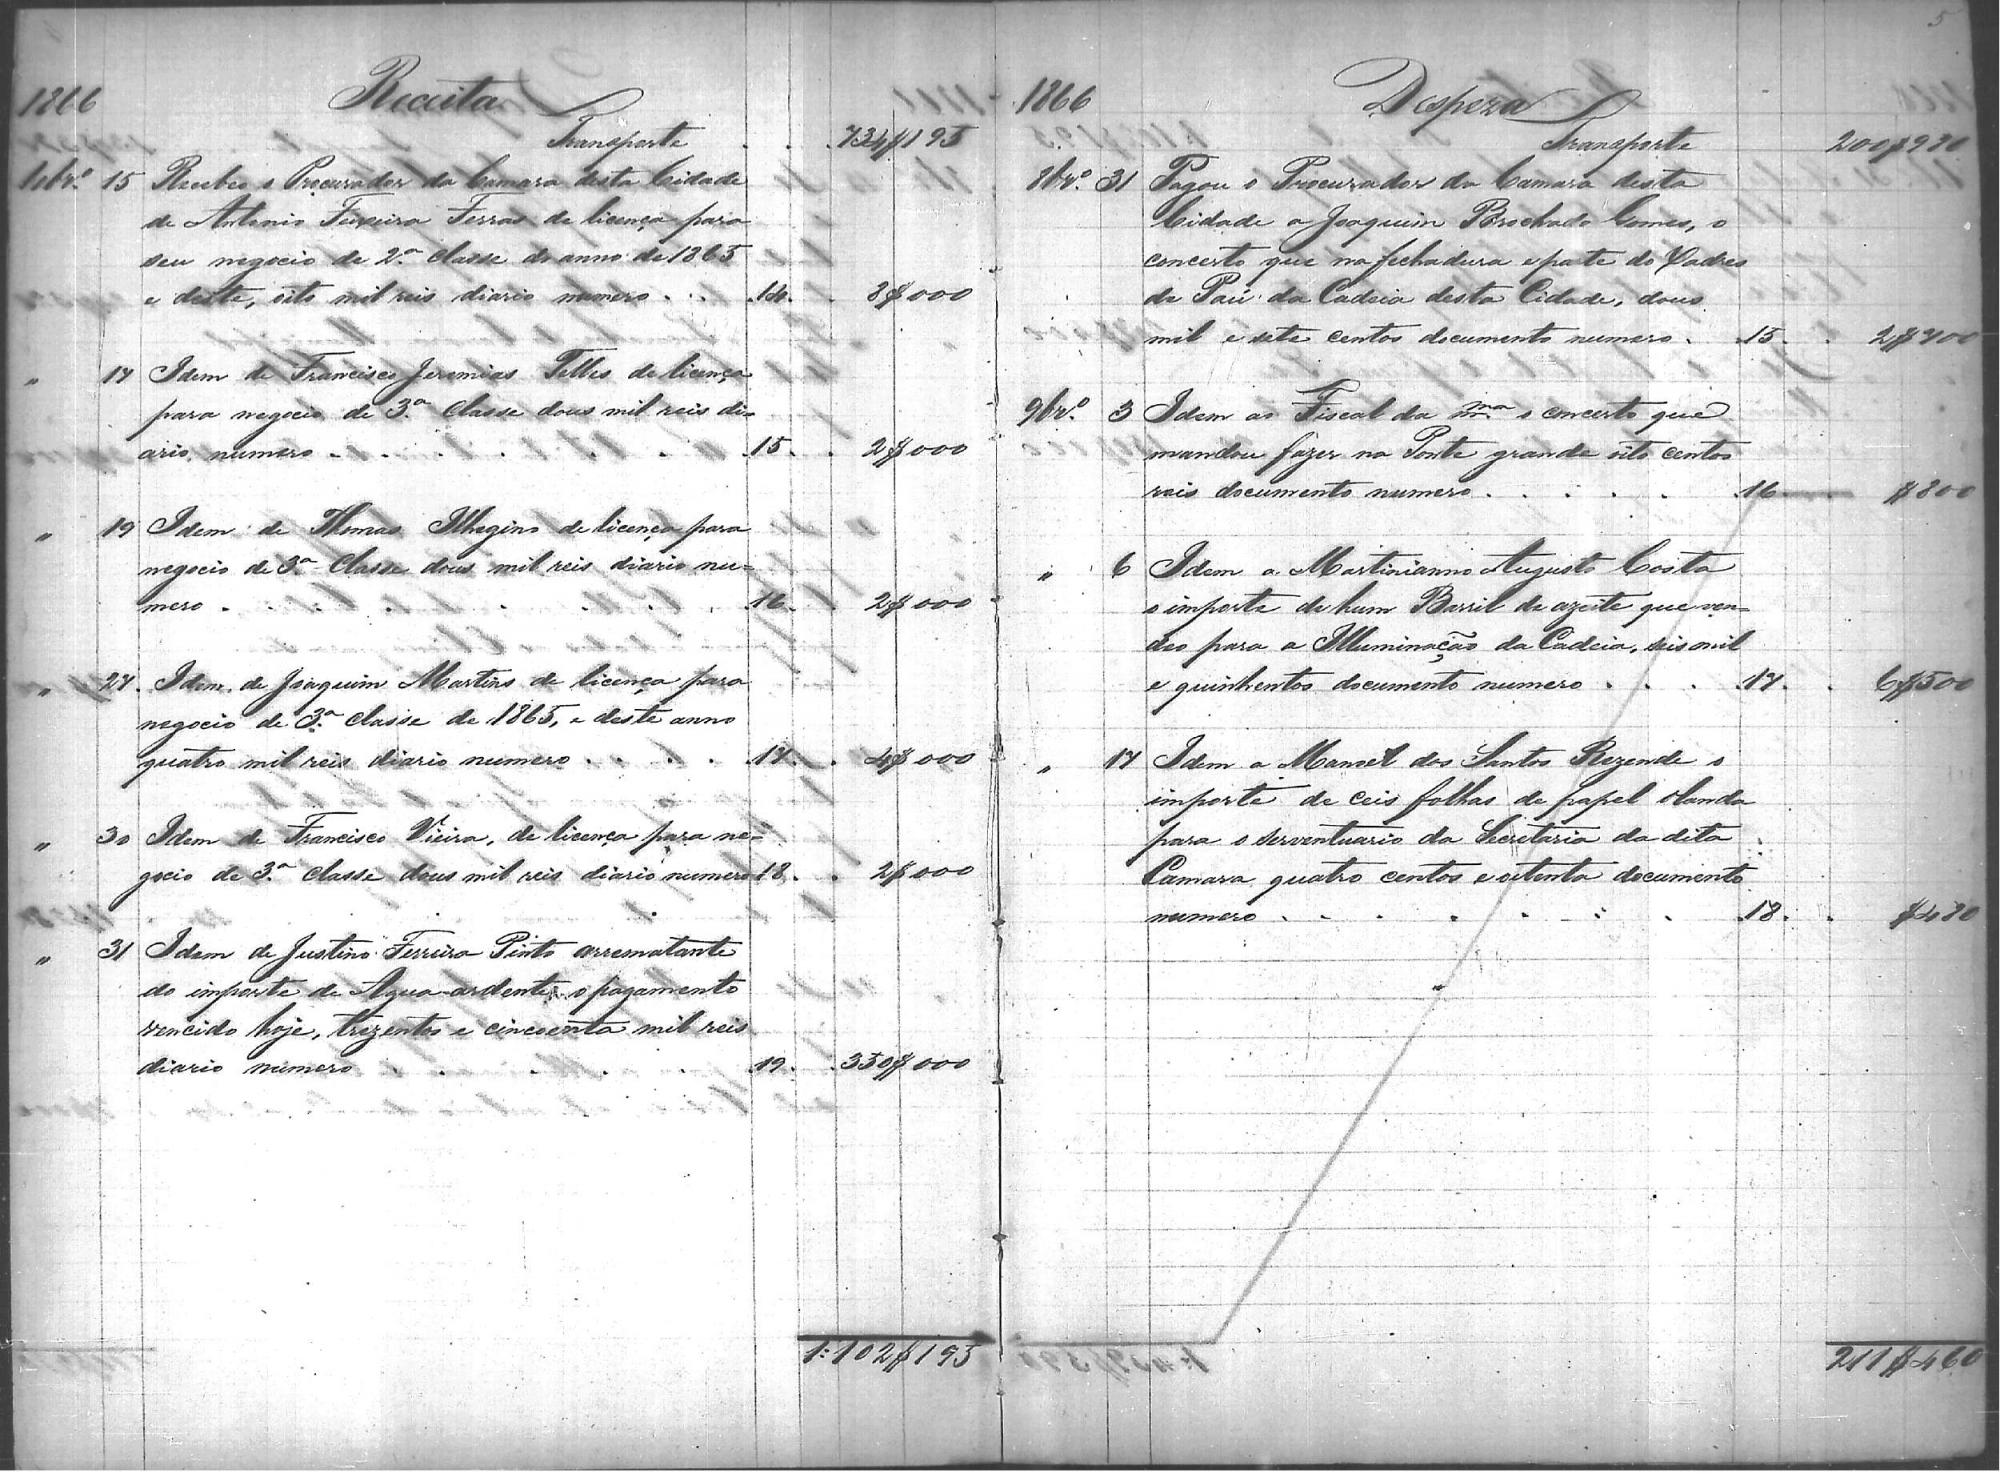 1866
Receita
Transporte . . . 734$195
8br.º 15 Recebeo o Procurador da Camara desta Cidade
de Antonio Teixeira Ferras de licença para
seu negocio de 2.ª classe do anno de 1865
e deste, oito mil reis diario numero . . . 14. . 8$000
" 17 Idem de Francisco Jeremias Telles de licença
para negocio de 3.ª Classe dous mil reis di=
ario numero . . . . . . 15. . 2$000
" 19 Idem de Thomas de licença para
negocio de 3.ª Classe dous mil reis diario nu=
mero . . . . . . . . 16. . 2$000
" 27. Idem de Joaquim Martins de licença para
negocio de 3.ª classe de 1865, e deste anno
quatro mil reis diario numero . . . . 17. . 4$000
" 30 Idem de Francisco Vieira, de licença para ne=
gocio de 3.ª classe dous mil reis diario numero 18. . 2$000
" 31 Idem de Justino Ferreira Pinto arrematante
do importe de Agua-ardente o pagamento
vencido hoje, trezentos e cincoenta mil reis
diario numero . . . . . 19. . 350$000
1:102$195
5
1866
Despeza
Transporte 200$980
8br.º 31 Pagou o Procurador da Camara desta
Cidade a Joaquim Brochado Gomes, o
concerto que na fechadura e parte do
de Pau da Cadeia desta Cidade, dous
mil e sete centos documento numero . . 15. . 2$700
9br.º 3 Idem ao Fiscal da m.ma o concerto que
mandou fazer na Ponte grande oito centos
reis documento numero . . . . . 16. . $800
" 6 Idem a Martinianno Augusto Costa
o importe de hum Barril de azeite que ven=
deo para a Illuminação da Cadeia, seis mil
e quinhentos documento numero . . . . 17. . 6$500
" 17 Idem a Manoel dos Santos Rezende o
importe de ceis folhas de papel olanda
para o serventuario da Secretaria da dita
Camara quatro centos e oitenta documento
numero . . . . . . . 18. . $480
211$460